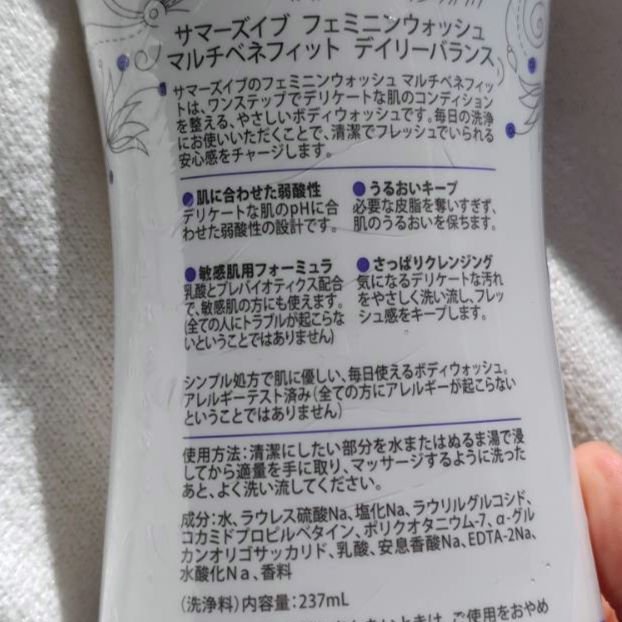 サマーズイブ フェミニンウォッシュ
マルチベネフィット デイリーバランス
サマーズイブのフェミニンウォッシュ マルチベネフィッ
トは、ワンステップでデリケートな肌のコンディション
を整える、やさしいボディウォッシュです。毎日の洗浄
にお使いいただくことで、清潔でフレッシュでいられる
安心感をチャージします。
●肌に合わせた弱酸性
デリケートな肌のpHに合
わせた弱酸性の設計です。
●うるおいキープ
必要な皮脂を奪いすぎず、
肌のうるおいを保ちます。
●敏感肌用フォーミュラ
乳酸とプレバイオティクス配合
で、敏感肌の方にも使えます。
(全ての人にトラブルが起こらな
いということではありません)
●さっぱりクレンジング
気になるデリケートな汚れ
をやさしく洗い流し、フレッ
シュ感をキープします。
シンプル処方で肌に優しい、毎日使えるボディウォッシュ。
アレルギーテスト済み(全ての方にアレルギーが起こらない
ということではありません)
使用方法：清潔にしたい部分を水またはぬるま湯で浸
してから適量を手に取り、マッサージするように洗った
あと、よく洗い流してください。
成分：水、ラウレス硫酸Na、塩化Na、ラウリルグルコシド、
コカミドプロピルベタイン、ポリクオタニウム-7、α-グル
カンオリゴサッカリド、乳酸、安息香酸Na、EDTA-2Na、
水酸化Ｎａ、香料
(洗浄料)内容量：237mL
ときは、ご使用をおやめ